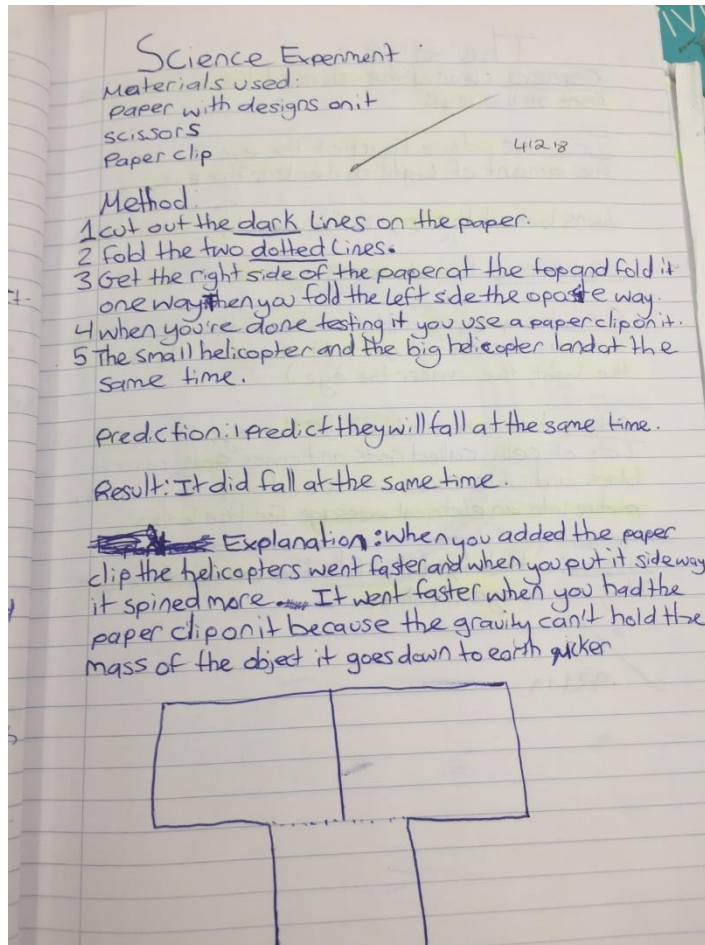 Science Experiment
Materials used:
paper with designs on it
scissors
Paper clip
Method:
1 cut out the dark lines on the paper.
2 fold the two dotted lines.
3 Get the right side of the paper at the top and fold it
one way then you fold the left side the oposite way.
4 when you're done testing it you use a paper clip on it.
5 The small helicopter and the big helicopter land at the
same time.
prediction: I predict they will fall at the same time.
Result: It did fall at the same time.
Explanation: when you added the paper
clip the helicopters went faster and when you put it sideway
it spined more. It went faster when you had the
paper clip on it because the gravity can't hold the
mass of the object it goes down to earth quicker